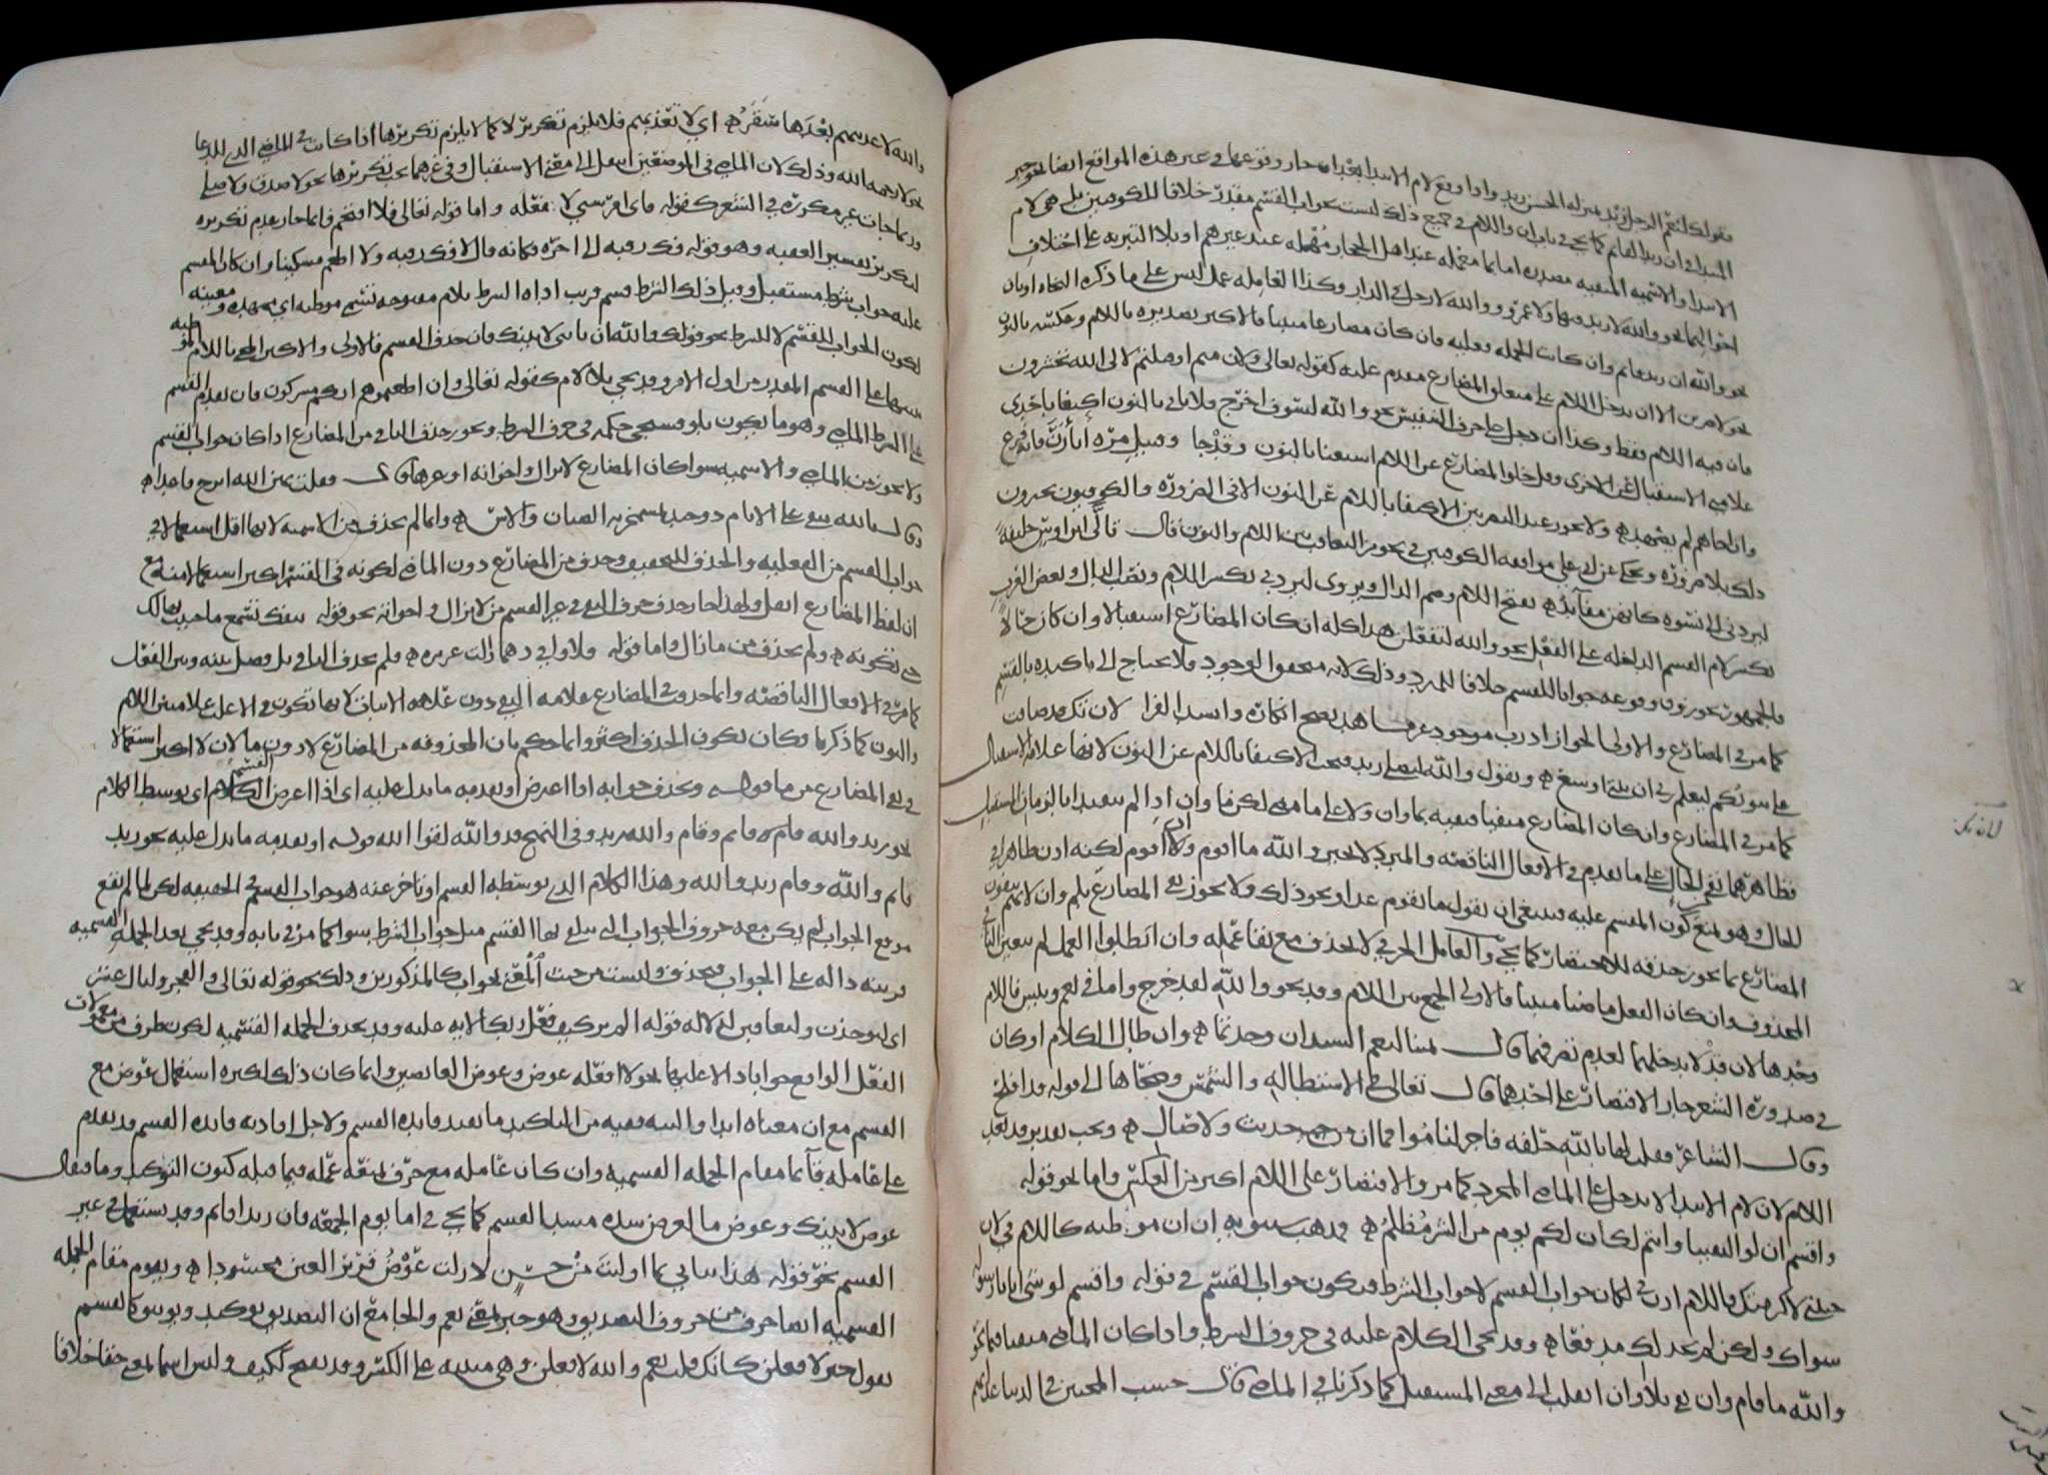 تقولك لنعم الرجل زيد بمنزلة الحسن زيد واذا وقع لام الابتدا بعد ان جاز وقوعها في غير هذه المواقع ايضا نحو خبر
المبتدا في ان زيدا لقائم كما يجي في باب ان واللام في جميع ذلك ليست بجواب القسم مقدر خلافا للكوفيين بل هي لام
الابتدا والاسمية المنفية مصدرة اما بما معمله عند اهل الحجاز مهمله عند غيرهم او بلا التبرية على اختلاف
احوالها نحو والله لا زيد فيها ولا عمرو ووالله لا رجل في الدار وكذا لا العاملة عمل ليس على ما ذكره النحاة او بان
نحو والله ان زيد قائم وان كانت الجملة فعلية فان كان مضارعا مثبتا فالاكثر تصديره باللام وعكسه بالنون
نحو لاضربن الا ان يدخل اللام على متعلق المضارع مقدم عليه كقوله تعالى ولئن متم او قتلتم لالى الله تحشرون
فان فيه اللام فقط وكذا ان دخل على حرف التنفيس نحو والله لسوف اخرج فلا ياتي بالنون اكتفا باحدى
علامتي الاستقبال عن الاخرى وقل خلو المضارع عن اللام استغنا بالنون وقد جا وقتيل مرة اثارن فانه فرع
وان اخاهم لم يقصد ه ولا يجوز عند البصريين الاكتفا باللام عن النون الا في الضرورة والكوفيون يجيزون
ذلك بلا ضرورة ويحكى عن ابي علي موافقة الكوفيين في تجويز التعاقب بين اللام والنون قال تالى ابن اوس حلفة
ليردني الى نسوة كانهن مفائد ه بفتح اللام وضم الدال ويروى ليردني بكسر اللام ونصب الدال وبعض العرب
يكسر لام القسم الداخلة على الفعل نحو والله لتفعلن هذا كله ان كان المضارع استقبالا وان كان حالا
فالجمهور يجوزون وقوعه جوابا للقسم خلافا للمبرد وذلك لانه متحقق الوجود فلا يحتاج الى تاكيده بالقسم
كما مر في المضارع والاولى الجواز اذ رب موجود غير مشاهد يصح انكاره وانشد الفرا لئن تك قد ضاقت
عليكم بيوتكم ليعلم ربي ان بيتي واسع ه ويقول والله ليصلي زيد فيجب الاكتفا باللام عن النون لانها علامة الاستقبال
كما مر في المضارع وان كان المضارع منفيا فنفيه بما وان ولا على ما مضى لكن ما وان اذا لم تتقيدا بالزمان المستقبل
فظاهرهما نفي الحال على ما تقدم في الافعال الناقصة والمبرد لا يجيز والله ما اقوم ولا ان اقوم لكنه اذن ظاهر في
للحال وهو يمنع كون المقسم عليه فينبغي ان نقول ما نقوم غدا ونحو ذلك ولا يجوز نفي المضارع بلم ولن لانهم ينفون
المضارع بما يجوز حذفه للاختصار كما يجي والعامل الحرفي لا يحذف مع بقا عمله وان ابطلوا العمل لم يتعين النافي
المحذوف وان كان الفعل ماضيا مثبتا فالاولى الجمع بين اللام وقد نحو والله لقد خرج واما في نعم وبئس فاللام
وحدها لان قد لا يدخلهما لعدم تصرفهما قال لينا لنعم السيدان وجدتما ه وان طال الكلام او كان
في ضرورة الشعر جاز الاقتصار على احدهما قال تعالى في الاستطالة والشمس وضحاها الى قوله قد افلح
وقال الشاعر فقلت لها بالله حلفة فاجر لناموا فما ان من حديث ولا صال ه ويجب تقدير قد بعد
اللام لان لام الابتدا لا تدخل على الماضي المجرد كما مر والاقتصار على اللام اكثر من العكس واما نحو قوله
واقسم ان لو التقينا وانتم لكان لكم يوم من الشر مظلم ه فذهب سيبويه ان ان موطئة كاللام في لئن
جئتني لاكرمنك فاللام اذن في لكان جواب القسم لا جواب الشرط فيكون جواب القسم في قوله واقسم لو شي اتانا رسوله
سواك ولكن لم نجد لك مدفعا ه وقد يجي الكلام عليه في حروف الشرط واذا كان الماضي منفيا فبما نحو
والله ما قام وان نفي بلا وان انقلب الى معنى المستقبل كما ذكرنا في الماضي قال حسب المحبين في الدنيا عذابهم
والله لا عذبتهم بعدها سقر ه اي لا تعذبهم فلا يلزم تكرير لا كما لا يلزم تكريرها اذا كانت في الماضي الذي للدعا
نحو لا رحمه الله وذلك لان الماضي في الموضعين انتقل الى معنى الاستقبال وفي غيرهما يجب تكريرها نحو لا صدق ولا صلى
وربما جات غير مكررة في الشعر كقوله فاي امر سيي لا فعله واما قوله تعالى فلا اقتحم فانما جاز بعدم تكريره
لتكرير تفسير العقبة وهو قوله فك رقبة الى اخره فكانه قال لا فك رقبة ولا اطعم مسكينا وان كان المقسم
عليه جواب شرط مستقبل وقبل ذلك الشرط قسم قرنت اداة الشرط بلام مفتوحة تسمى موطئة اي ممهدة ومعينة
لكون الجواب للقسم لا للشرط نحو قولك والله لئن تاتني لاتينك فان حذف القسم فالاولى والاكثر المجي باللام الموطئة
تنبيها على القسم المقدر من اول الامر وقد يجي بلا لام كقوله تعالى وان اطعتموهم انكم لمشركون فان تقدم القسم
على الشرط الماضي وهو ما يكون بلو فسيجي حكمه في حرف الشرط ويجوز حذف النافي من المضارع اذا كان جواب القسم
ولا يجوز من الماضي والاسمية سوا كان المضارع لا يزال واخواته او غيرها قال فقلت يمين الله ابرح قاعدا ه
وقال تالله يبقى على الايام ذو حيد بمشمخر به الظيان والاس ه وانما لم يحذف من الاسمية لانها اقل استعمالا في
جواب القسم من الفعلية والحذف للتخفيف وحذف من المضارع دون الماضي لكونه في القسم اكثر استعمالا منه مع
ان لفظ المضارع اثقل ولهذا جاز حذف حرف النفي في غير القسم من لا يزال واخواته نحو قوله تنفك تسمع ما حييت بهالك
حتى تكونه ه ولم يحذف من ما زال واما قوله فلا وابي دهما زالت عزيزة ه فلم يحذف النافي بل فصل بينه وبين الفعل
كما مر في الافعال الناقصة وانما حذف في المضارع علامة النفي دون علامة الاثبات لانها تكون في الاغلب علامتين اللام
والنون كما ذكرنا فكان يكون الحذف اكثر وانما حكم بان المحذوفة من المضارع لا دون ما لان لا اكثر استعمالا
في نفي المضارع من ما قوله ويحذف جوابه اذا اعترض او تقدمه ما يدل عليه اي اذا اعترض القسم الكلام اي توسط الكلام
نحو زيد والله قام ه قائم وقام والله زيد وفي النهج قد والله لقوا الله قوله او تقدمه ما يدل عليه نحو زيد
قائم والله وقام زيد والله وهذا الكلام الذي توسطه القسم او تاخر عنه هو جواب القسم في الحقيقة لكن لما لم يقع
موقع الجواب لم يكن معه حروف الجواب التي يتلقى بها القسم مثل جواب الشرط سوا كما مر في بابه وقد يجي بعد الجملة القسمية
قرينة دالة على الجواب فيحذف وليست من حيث المعنى بجواب كالمذكورين وذلك نحو قوله تعالى والفجر وليال عشر
اي ليوخذن وليعاقبن لدلالة قوله الم تر كيف فعل ربك الاية عليه وقد يحذف الجملة القسمية لكون ظرف من معمولات
الفعل الواقع جوابا دالا عليها نحو لا افعله عوض وعوض العائضين وانما كان ذلك لكثرة استعمال عوض مع
القسم مع ان معناه ابدا والبتة ففيه من التاكيد ما يفيد فائدة القسم ولاجل افادته فائدة القسم قد يقدم
على عامله قائما مقام الجملة القسمية وان كان عامله مع حرف يمنعه عمله فيما قبله كنون التوكيد وما فيقال
عوض لاتينك وعوض ما لعرض سده مسد القسم كما يجي في اما يوم الجمعة فان زيدا قائم وقد يستعمل في غير
القسم نحو قوله هذا ثنايي بما اوليت من حسن لا زلت عوض قرير العين محسودا ه ويقوم مقام الجملة
القسمية ايضا حرف من حروف التصديق وهو جير بمعنى نعم والجامع ان التصديق توكيد وتوثيق كالقسم
تقول جير لافعلن كانك قلت نعم والله لافعلن وهي مبنية على الكسر وقد يفتح ككيف وليس اسما بمعنى حقا خلافا